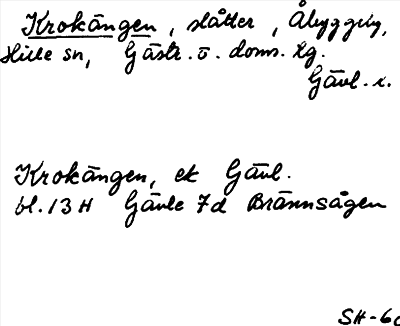 Krokängen, slåtter, Åbyggeby,
Hille sn, Gästr. ö. doms. tg.
Gävl. l.
Krokängen, ek Gävl.
bl. 13 H Gävle 7d Brännsågen
SH-60